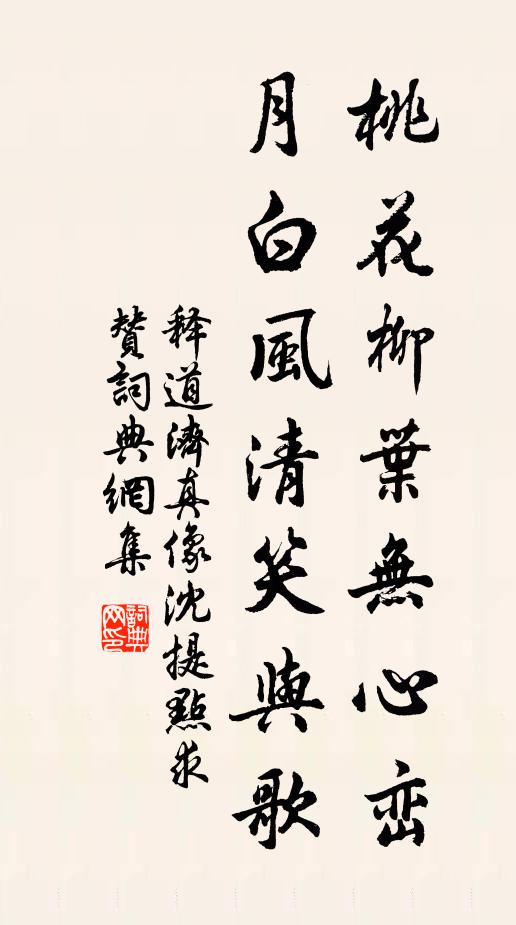 桃花柳葉無心峦
月白風清笑與歌
释道濟真像沈提點求
賛詞典網集
詞典网印